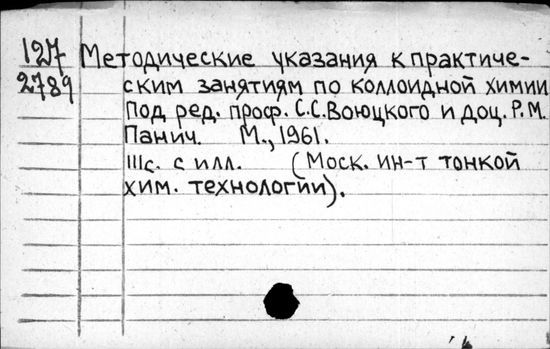 127 Методические указания к практиче-
2789 ским занятиям по коллоидной химии
Под ред. проф. С.С. Воюцкого и доц. Р.М.
Панич. М., 1961.
111с. с илл. (Моск. ин-т тонкой
хим. технологии).